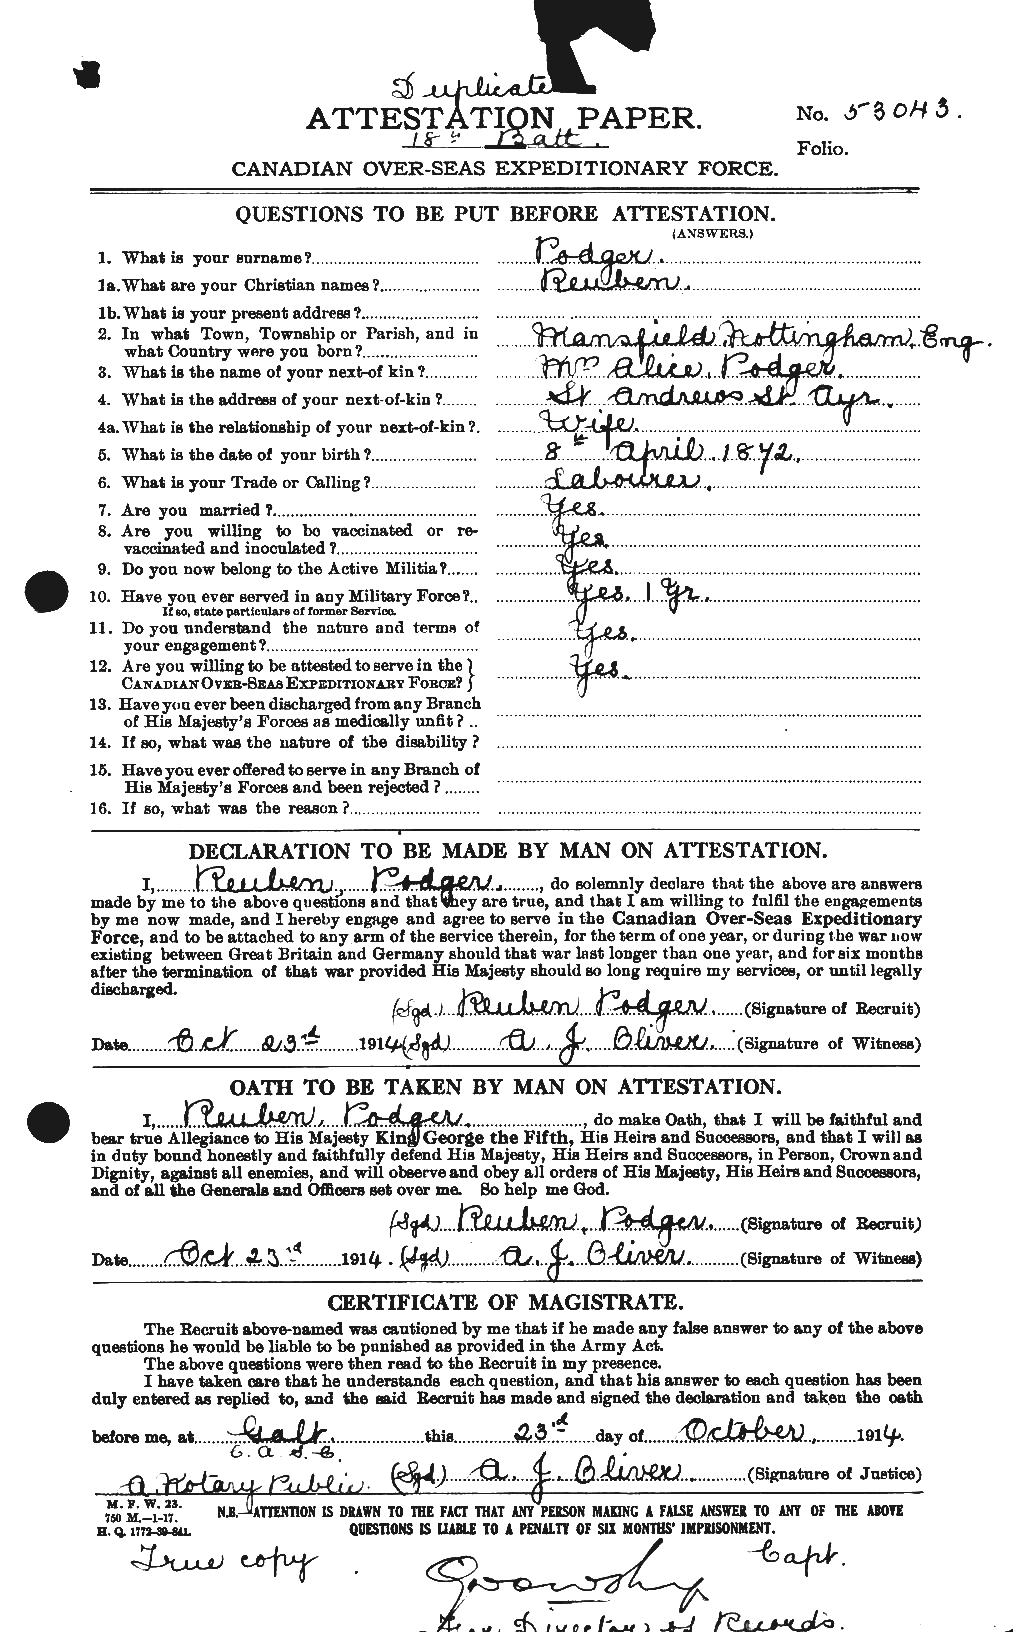 Duplicate
ATTESTATION PAPER.
No. 53043.
18th Batt.
Folio.
CANADIAN OVER-SEAS EXPEDITIONARY FORCE.
QUESTIONS TO BE PUT BEFORE ATTESTATION.
(ANSWERS.)
1. What is your surname? Podger.
1a. What are your Christian names? Reuben.
1b. What is your present address?
2. In what Town, Township or Parish, and in
what Country were you born? Mansfield Nottingham, Eng.
3. What is the name of your next-of kin? Mrs Alice, Podger.
4. What is the address of your next-of-kin? St. Andrews St. Ayr.
4a. What is the relationship of your next-of-kin? Wife.
5. What is the date of your birth? 8th April, 1872.
6. What is your Trade or Calling? Labourer.
7. Are you married? Yes.
8. Are you willing to be vaccinated or re-
vaccinated and inoculated? Yes
9. Do you now belong to the Active Militia? Yes.
10. Have you ever served in any Military Force? Yes. 1 Yr.
If so, state particulars of former Service.
11. Do you understand the nature and terms of
your engagement? Yes.
12. Are you willing to be attested to serve in the
CANADIAN OVER-SEAS EXPEDITIONARY FORCE? Yes.
13. Have you ever been discharged from any Branch
of His Majesty's Forces as medically unfit?
14. If so, what was the nature of the disability?
15. Have you ever offered to serve in any Branch of
His Majesty's Forces and been rejected?
16. If so, what was the reason?
DECLARATION TO BE MADE BY MAN ON ATTESTATION.
I, Reuben, Podger., do solemnly declare that the above are answers
made by me to the above questions and that they are true, and that I am willing to fulfil the engagements
by me now made, and I hereby engage and agree to serve in the Canadian Over-Seas Expeditionary
Force, and to be attached to any arm of the service therein, for the term of one year, or during the war now
existing between Great Britain and Germany should that war last longer than one year, and for six months
after the termination of that war provided His Majesty should so long require my services, or until legally
discharged.
(Sgd.) Reuben Podger (Signature of Recruit)
Date Oct 23rd 1914 (Sgd) A. J. Oliver. (Signature of Witness)
OATH TO BE TAKEN BY MAN ON ATTESTATION.
I, Reuben, Podger., do make Oath, that I will be faithful and
bear true Allegiance to His Majesty King George the Fifth, His Heirs and Successors, and that I will as
in duty bound honestly and faithfully defend His Majesty, His Heirs and Successors, in Person, Crown and
Dignity, against all enemies, and will observe and obey all orders of His Majesty, His Heirs and Successors,
and of all the Generals and Officers set over me. So help me God.
(Sgd) Reuben, Podger. (Signature of Recruit)
Date Oct 23rd 1914. (Sgd) A. J. Oliver (Signature of Witness)
CERTIFICATE OF MAGISTRATE.
The Recruit above-named was cautioned by me that if he made any false answer to any of the above
questions he would be liable to be punished as provided in the Army Act.
The above questions were then read to the Recruit in my presence.
I have taken care that he understands each question, and that his answer to each question has been
duly entered as replied to, and the said Recruit has made and signed the declaration and taken the oath
before me, at Galt this 23rd day of October, 1914.
A. Notary Public. (Sgd) A. J. Oliver (Signature of Justice)
M. F. W. 23.
750 M.—1-17.
H. Q. 1772-39-841.
N.B.—ATTENTION IS DRAWN TO THE FACT THAT ANY PERSON MAKING A FALSE ANSWER TO ANY OF THE ABOVE
QUESTIONS IS LIABLE TO A PENALTY OF SIX MONTHS' IMPRISONMENT.
True copy
Capt.
For Director of Records.